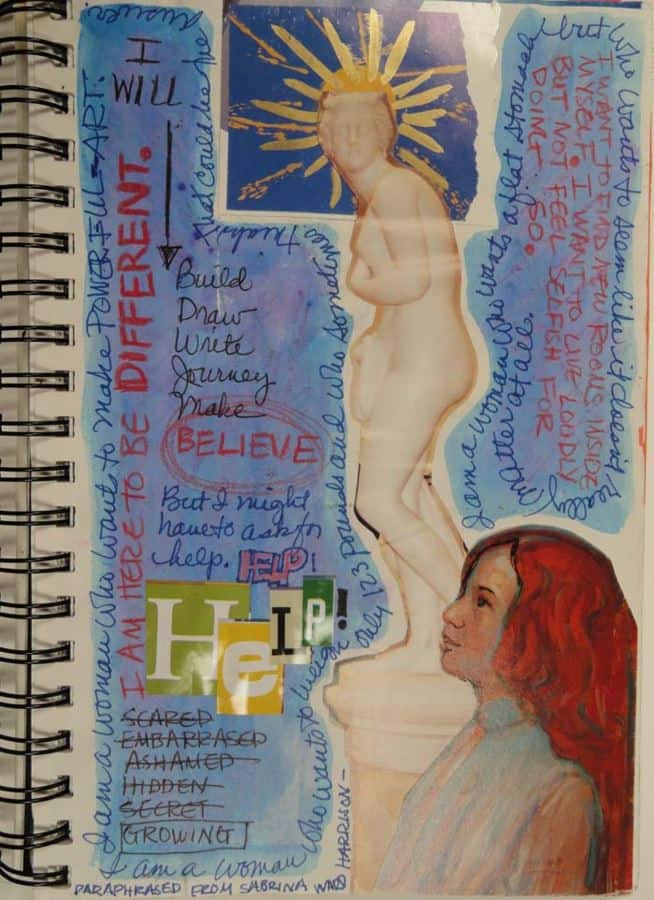 I
WILL
Build
Draw
Write
Journey
Make
BELIEVE
But I might
have to ask for
help. HELP!
HeLP!
SCARED
EMBARRASED
ASHAMED
HIDDEN
SECRET
GROWING
I AM HERE TO BE DIFFERENT.
I am a woman who wants to make POWERFUL ART.
I am a woman who wants to weigh
only 123 pounds and who sometimes thinks
that could be the
answer.
I am a woman who wants a flat stomach
but who wants to seem like it doesn't really
matter at all.
I WANT TO FIND NEW ROOMS INSIDE
MYSELF. I WANT TO LIVE LOUDLY
BUT NOT FEEL SELFISH FOR
DOING SO.
PARAPHRASED FROM SABRINA WARD HARRISON